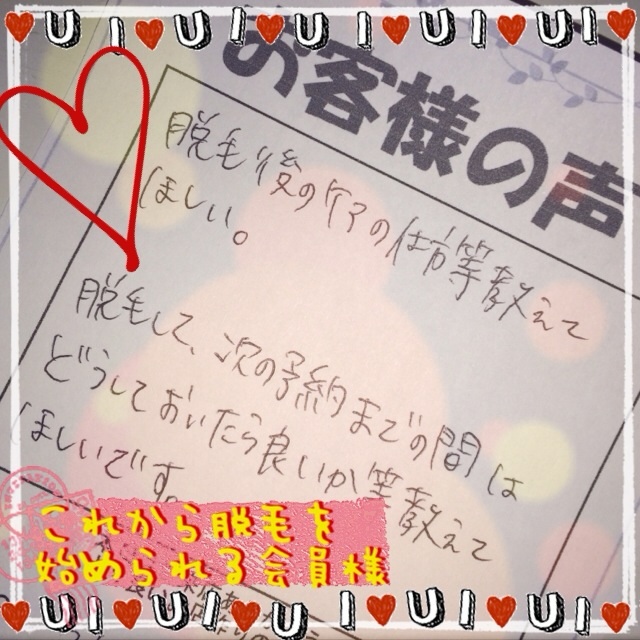 UIUIUIUIUI
お客様の声
脱毛後のケアの仕方等教えて
ほしい。
脱毛して、次の予約までの間は
どうしておいたら良いか等教えて
ほしいです。
これから脱毛を
始められる会員様
UIUIUIUIUI